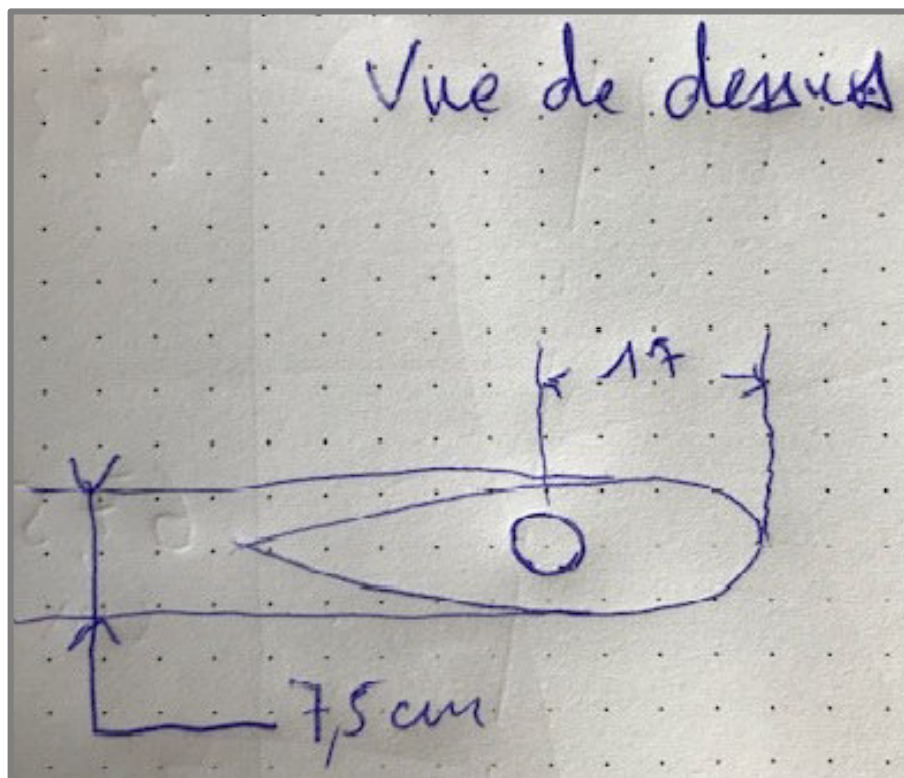 Vue de dessus
17
7,5 cm